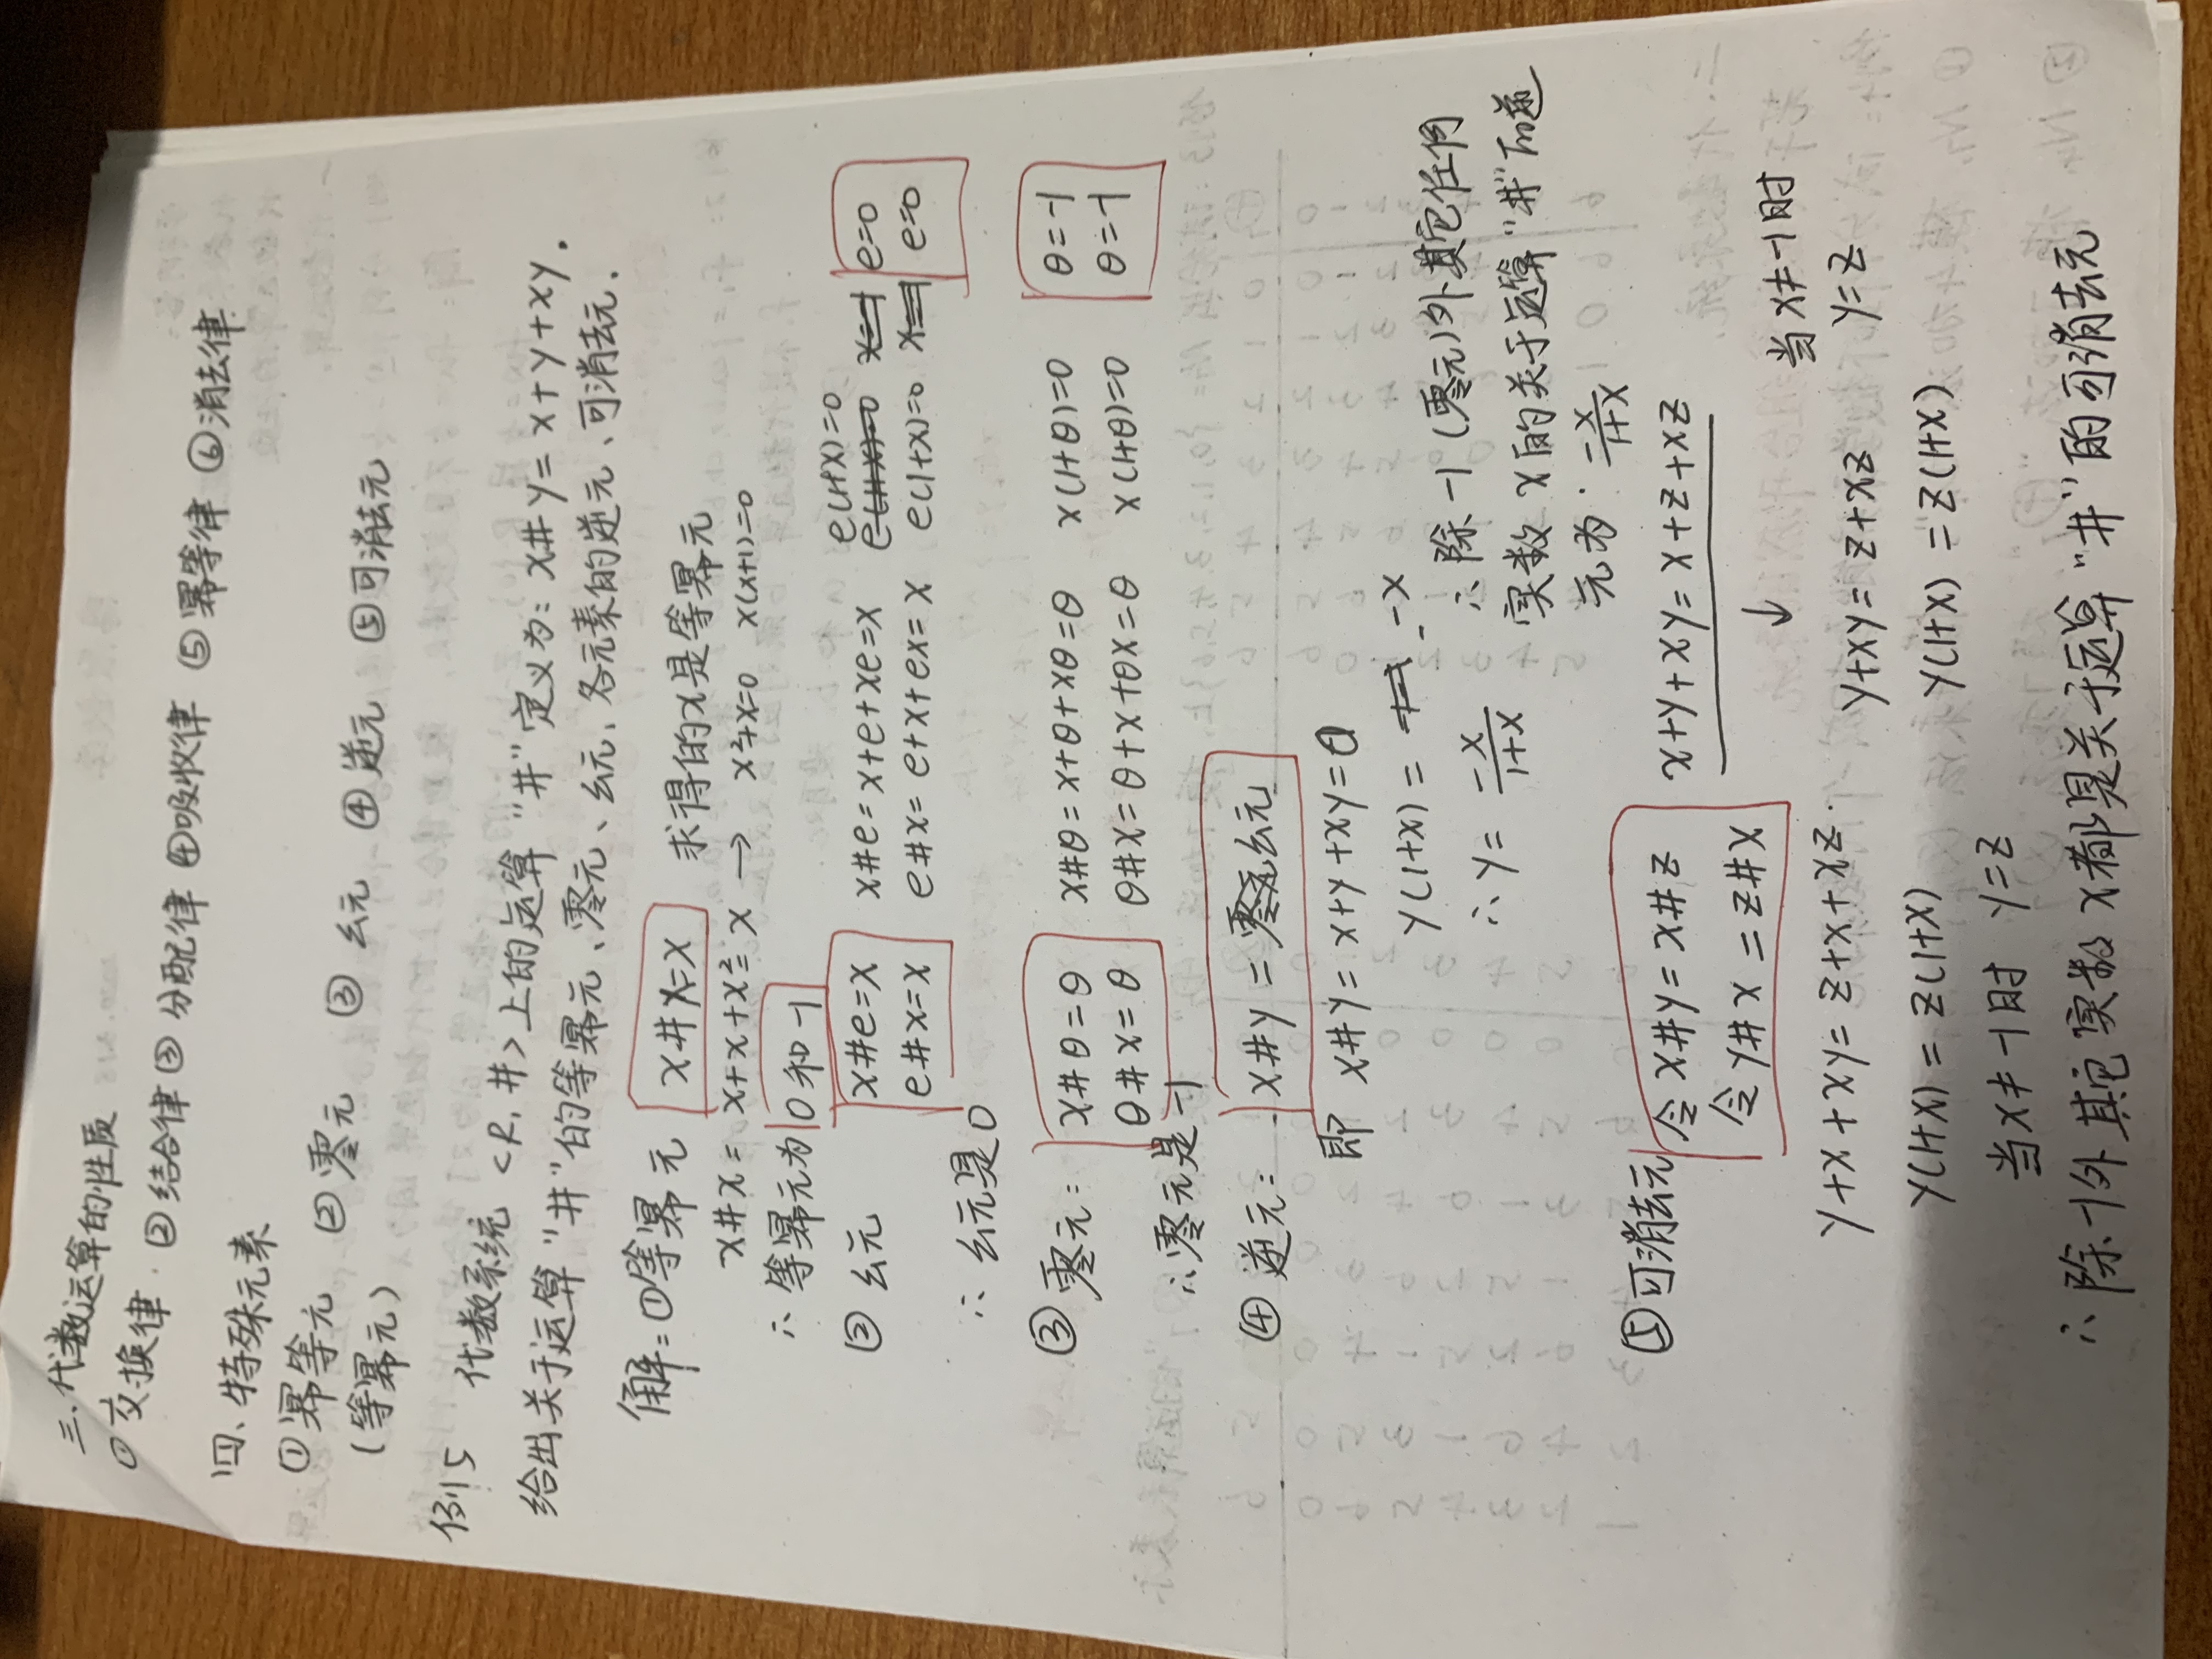 三、代数运算的性质
① 交换律. ② 结合律 ③ 分配律 ④吸收律 ⑤ 幂等律 ⑥消去律
四、特殊元素
① 幂等元 ② 零元 ③ 幺元 ④ 逆元 ⑤可消去元
(等幂元)
例5 代数系统 <R, #> 上的运算 "#" 定义为: x#y = x+y+xy.
给出关于运算 "#" 的等幂元、零元、幺元、各元素的逆元、可消去元.
解: ①等幂元 x#x=x 求得的x是等幂元
x#x = x+x+x²=x → x²+x=0 x(x+1)=0
∴ 等幂元为 0 和 -1
② 幺元 x#e=x x#e=x+e+xe=x e(1+x)=0 e=0
e#x=x e#x= e+x+ex=x e(1+x)=0 e=0
∴ 幺元是0
③ 零元: x#θ=θ x#θ=x+θ+xθ=θ x(1+θ)=0 θ=-1
θ#x=θ θ#x=θ+x+θx=θ x(1+θ)=0 θ=-1
∴零元是-1
④ 逆元: x#y = 幺元
即 x#y = x+y+xy=0
y(1+x) = -x ∴ 除 -1 (零元)外其它任何
∴ y = -x/1+x 实数 x的关于运算"#"的逆
元为. -x/1+x
⑤可消去元 令x#y=x#z x+y+xy=x+z+xz
令y#x=z#x ↓ 当x≠-1时
y+x+xy=z+x+xz. y+xy=z+xz y=z
y(1+x)=z(1+x) y(1+x)=z(1+x)
当x≠-1时 y=z
∴ 除-1外其它实数x都是关于运算"#"的可消去元